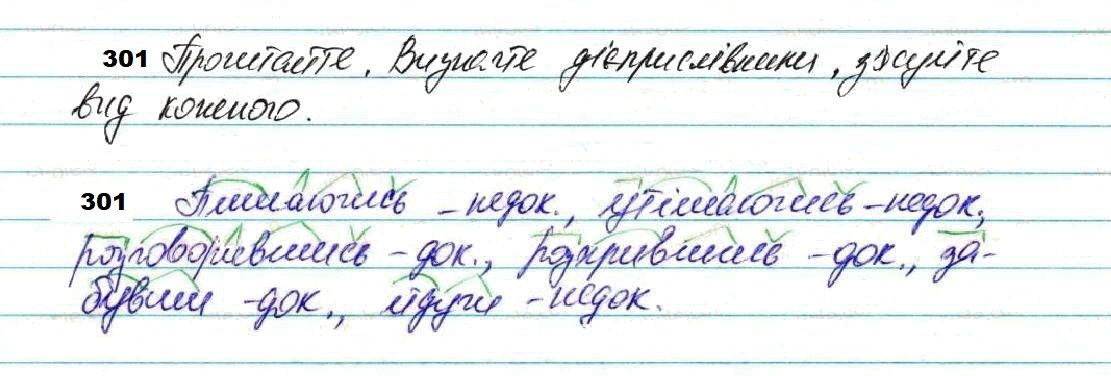 301 Прочитайте. Визначте дієприслівники, з'ясуйте
вид кожного.
301 Пишаючись – недок., утішаючись – недок.,
розговорившись – док., розкрившись – док., за-
бувши – док., йдучи – недок.